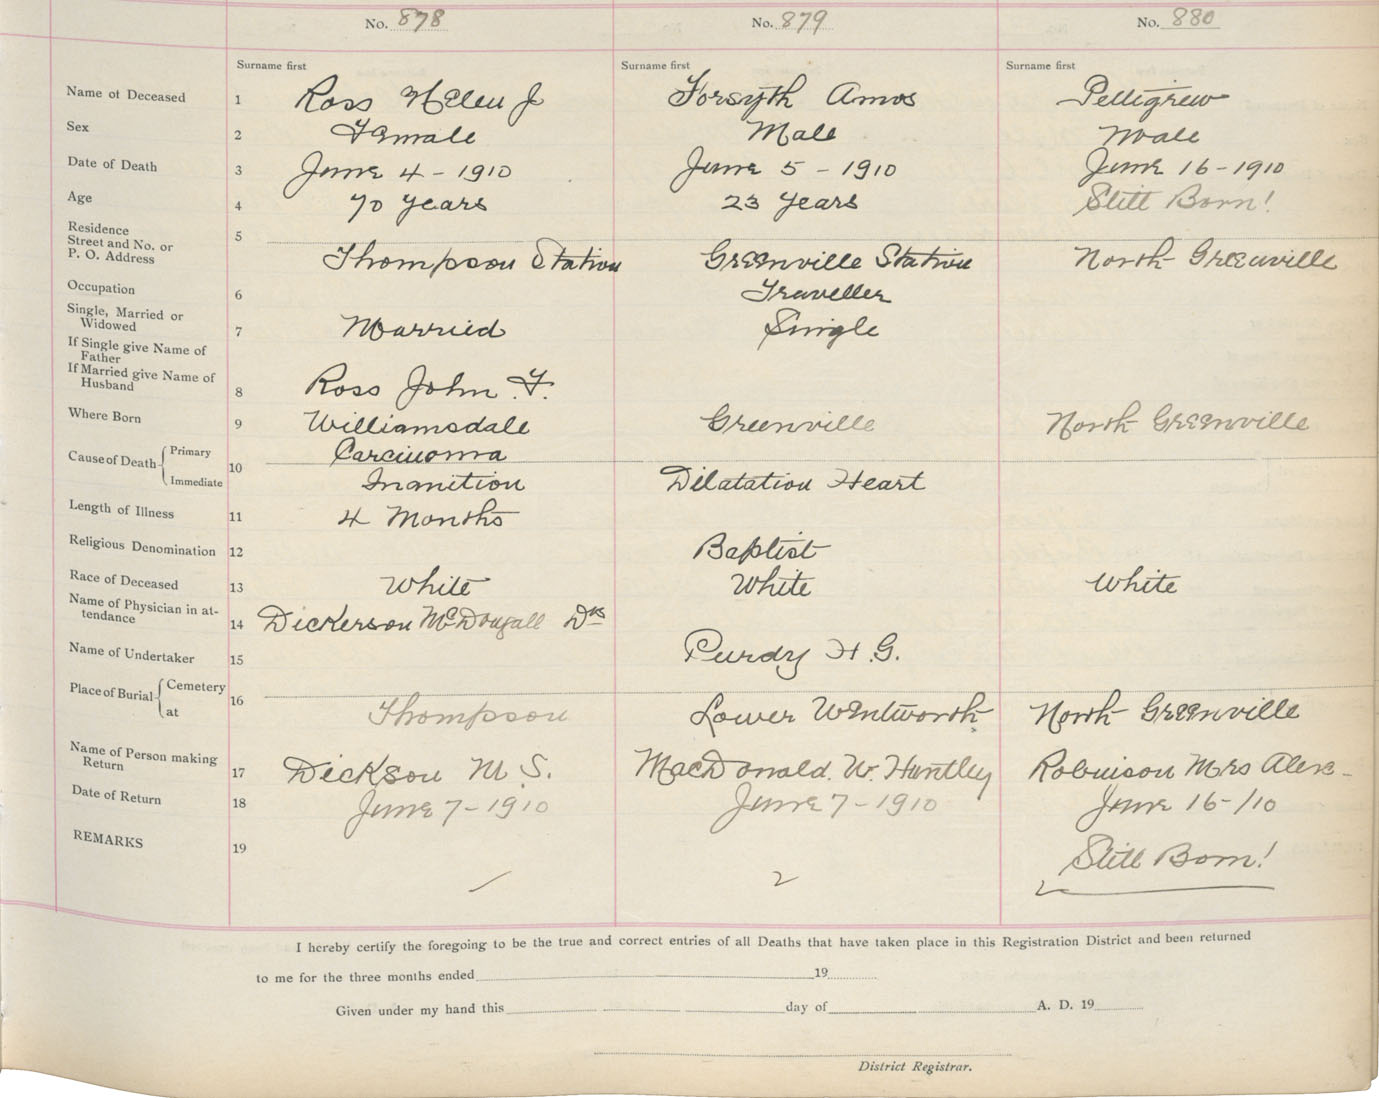 No. 878 No. 879 No. 880
Surname first Surname first Surname first
Name of Deceased 1 Ross Helen J Forsyth Amos Pettigrew
Sex 2 Female Male Male
Date of Death 3 June 4 - 1910 June 5 - 1910 June 16 - 1910
Age 4 70 years 23 years Still Born!
Residence
Street and No. or
P. O. Address 5 Thompson Station Greenville Station North Greenville
Occupation 6 Traveller
Single, Married or
Widowed 7 Married Single
If Single give Name of
Father
If Married give Name of
Husband 8 Ross John F.
Where Born 9 Williamsdale Greenville North Greenville
Cause of Death Primary 10 Carcinoma
Immediate Inanition Dilatation Heart
Length of Illness 11 4 Months
Religious Denomination 12 Baptist
Race of Deceased 13 White White White
Name of Physician in at-
tendance 14 Dickerson McDougall Drs
Name of Undertaker 15 Purdy H.G.
Place of Burial Cemetery 16
at Thompson Lower Wentworth North Greenville
Name of Person making
Return 17 Dickson M. S. MacDonald. W. Huntley Robinson Mrs Alex-
Date of Return 18 June 7 - 1910 June 7 - 1910 June 16 - /10
REMARKS 19 Still Born!
2
I hereby certify the foregoing to be the true and correct entries of all Deaths that have taken place in this Registration District and been returned
to me for the three months ended 19
Given under my hand this day of A. D. 19
District Registrar.